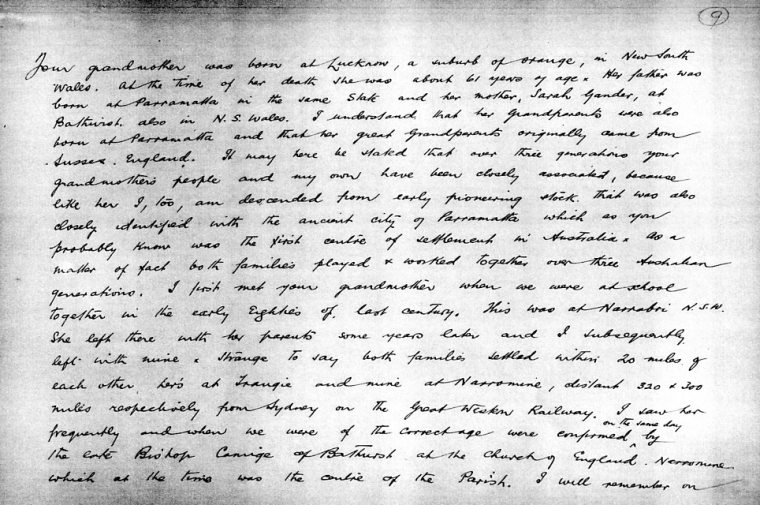 9
Your grandmother was born at Lucknow, a suburb of Orange, in New South
Wales. At the time of her death she was about 61 years of age & Her father was
born at Parramatta in the same State and her mother, Sarah Gander, at
Bathurst also in N.S. Wales. I understand that her Grandparents were also
born at Parramatta and that her great Grandparents originally came from
Sussex. England. It may here be stated that over three generations your
grandmother's people and my own have been closely associated, because
like her I, too, am descended from early pioneering stock that was also
closely identified with the ancient city of Parramatta which as you
probably know was the first centre of settlement in Australia. As a
matter of fact both families played & worked together over three Australian
generations. I first met your grandmother when we were at school
together in the early Eighties of last century. This was at Narrabri N.S.W.
She left there with her parents some years later and I subsequently
left with mine & strange to say both families settled within 20 miles of
each other, her's at Trangie and mine at Narromine, distant 320 & 300
miles respectively from Sydney on the Great Western Railway. I saw her
frequently and when we were of the correct age were confirmed on the same day by
the late Bishop Camidge of Bathurst at the Church of England. Narromine
which at the time was the centre of the Parish. I will remember on